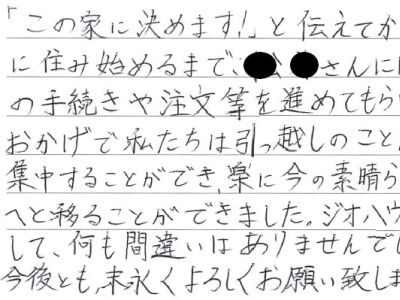 「この家に決めます!」と伝えてか
に住み始めるまで、さんに
の手続きや注文等を進めてもら
おかげで私たちは引っ越しのこと
集中することができ、楽に今の素晴ら
へと移ることができました。ジオハウ
して、何も間違いはありませんでし
今後とも、末永くよろしくお願い致しま